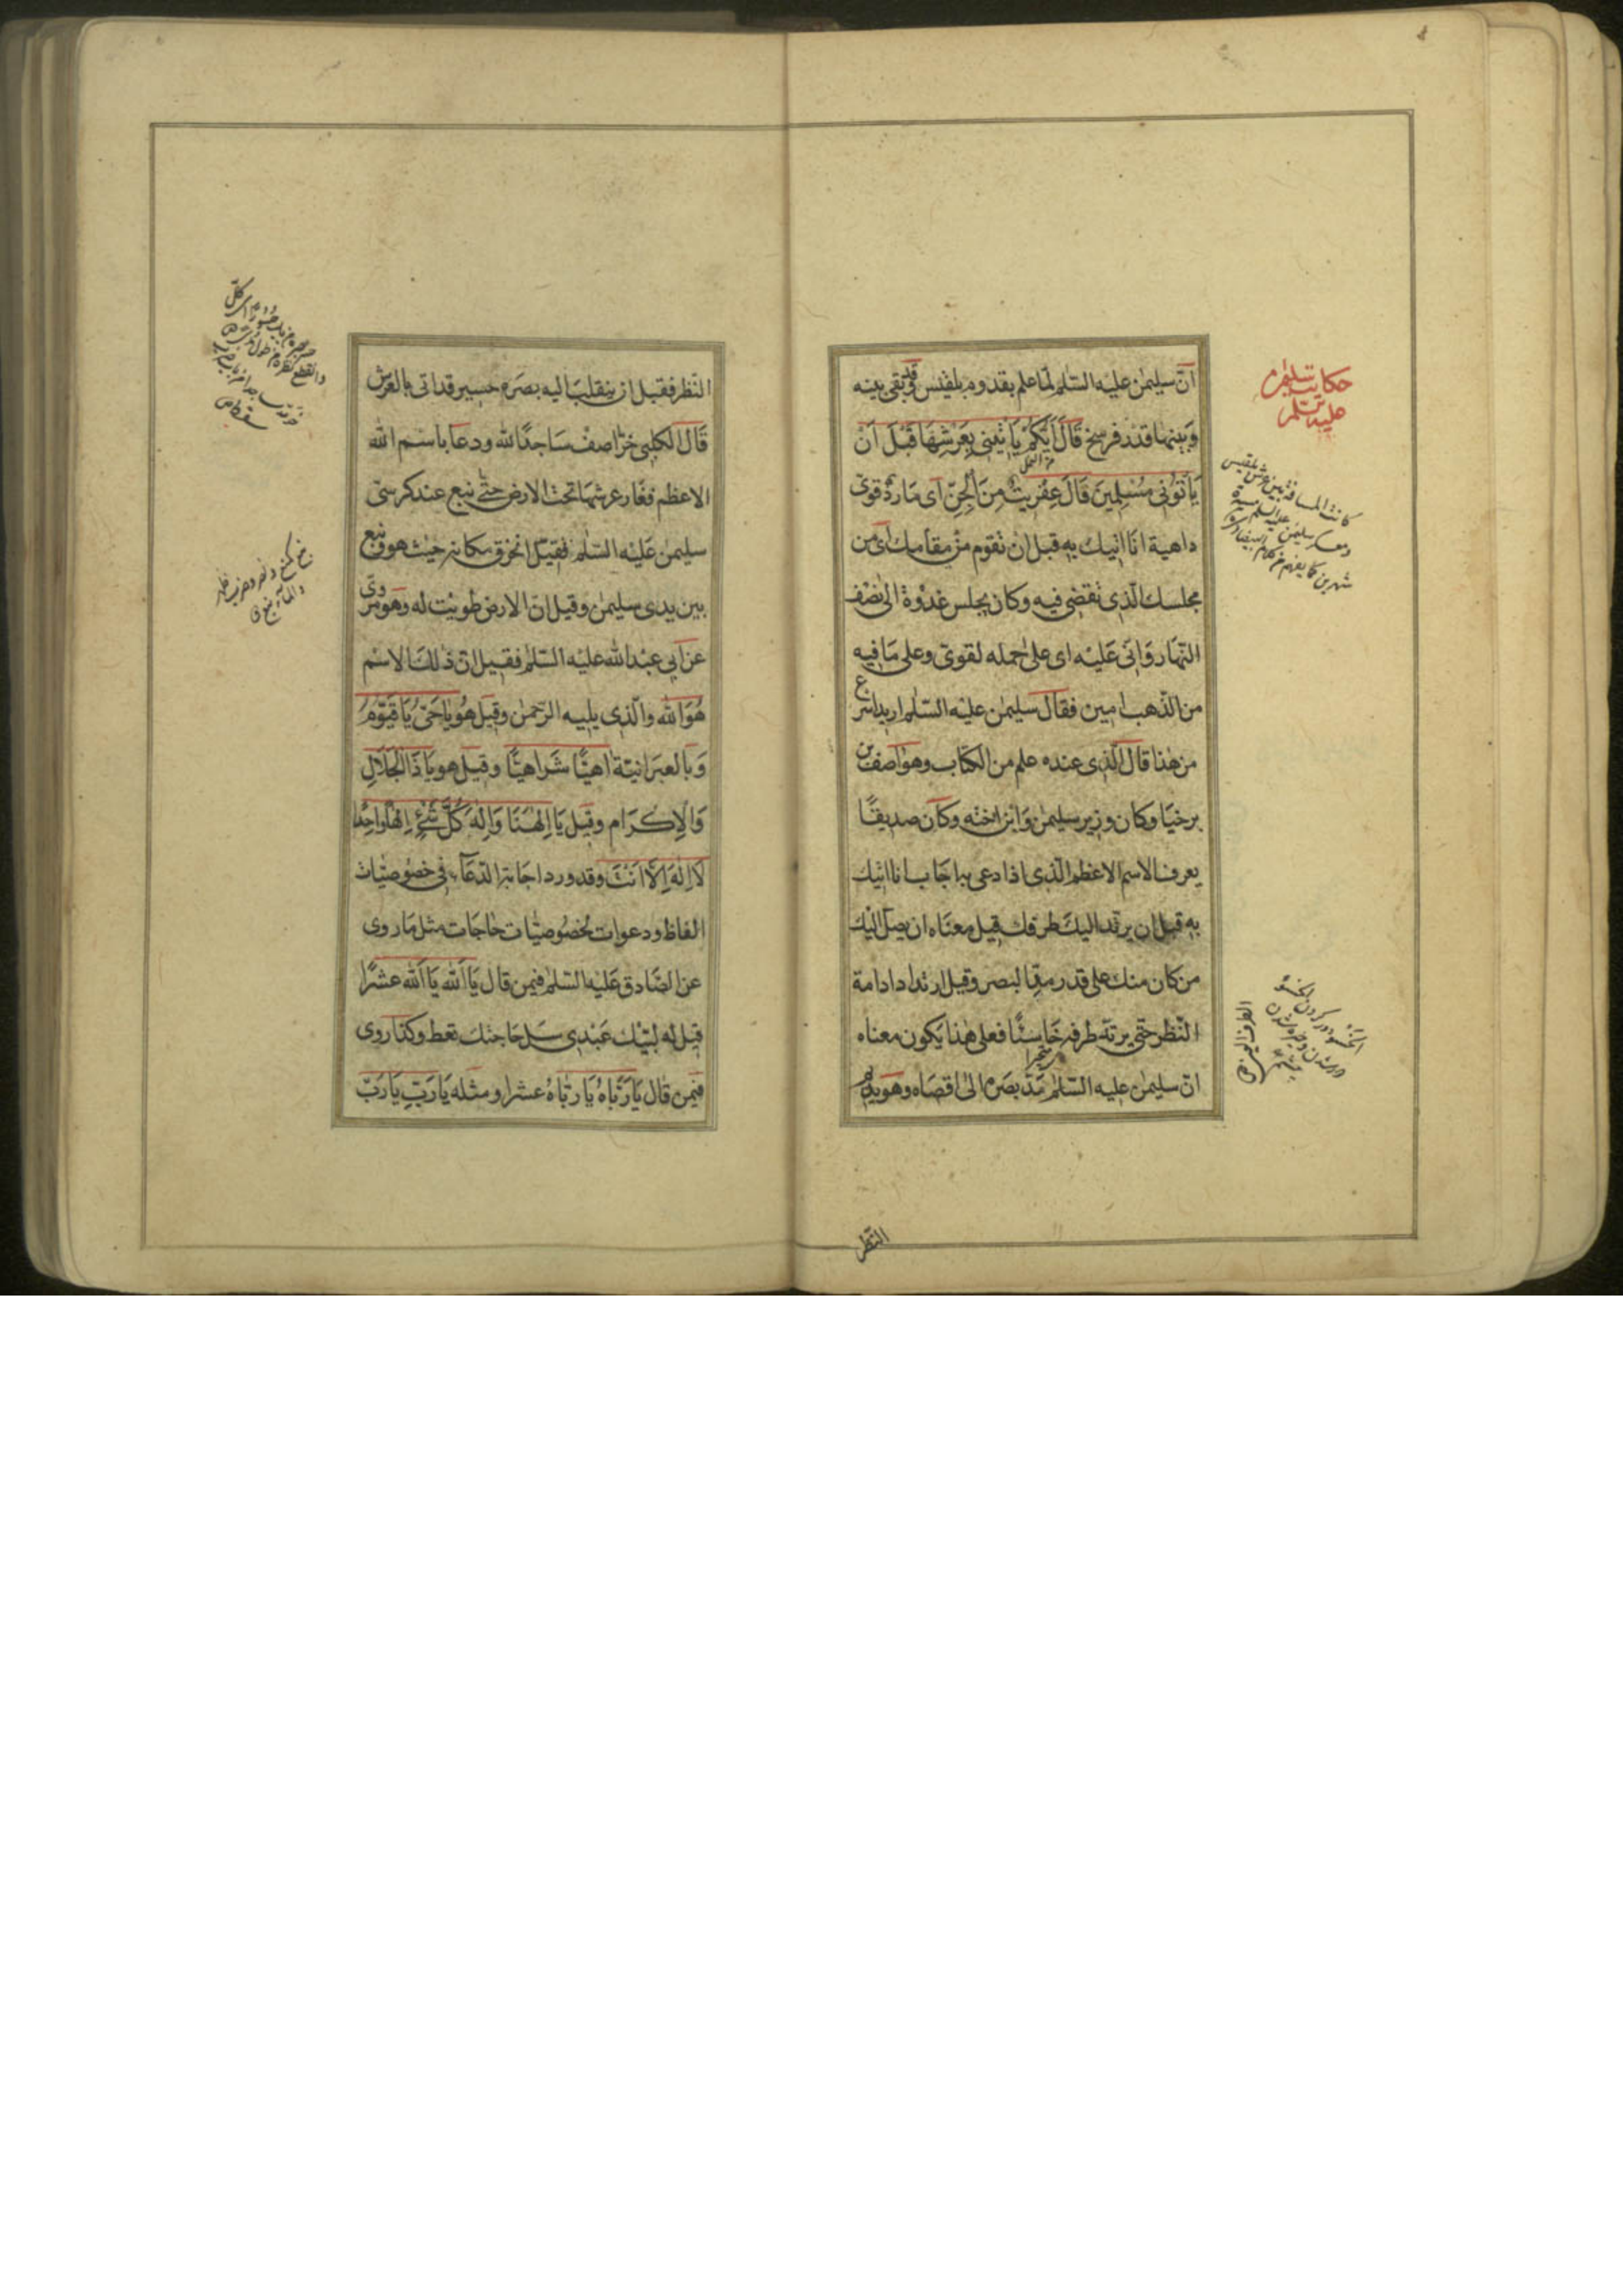 حكايت سليمن
عليه السلم
انّ سليمن عليه السّلم لمّا علم بقدوم بلقيس وقد بقى بينه
وبينها قدر فرسخ قَالَ اَيُّكُمْ يَأْتينى بِعَرْشِهَا قَبْلَ اَنْ
من النمل
يَأتُونى مُسْلِمينَ قَالَ عِفْريتٌ مِنَ الْجِنِّ اى مارد قوىّ
داهية انا اتيك به قبل ان تقوم من مقامك اى من
مجلسك الّذى تقضى فيه وكان يجلس غدوة الى نصف
النّهار وَانّى عَليْه اى على حمله لقوىّ وعلى ما فيه
من الذّهب امين فقال سليمن عليه السّلم اريد اسرع
من هذا قال الّذى عنده علم من الكتاب وهو اصف بن
برخيا وكان وزير سليمن وابن اخته وكان صديقًا
يعرف الاسم الاعظم الّذى اذا دعى به اجاب انا اتيك
به قبل ان يرتد اليك طرفك قيل معناه ان يصل اليك
من كان منك على قدر مدّ البصر وقيل ارتداد ادامة
النّظر حتّى يرتدّ طرفه خاسئًا فعلى هذا يكون معناه
انّ سليمن عليه السّلم مدّ بصره الى اقصاه وهو يديم
النّظر
كانت المسافة بين عرش بلقيس
شهرين كما يفهم من كلام البيضاوى
النّظر فقبل ان ينقلب اليه بصره حسير قد اتى بالعرش
قَالَ الكلبى خرّ اصف ساجدًا لله ودعا باسم الله
الاعظم فغار عرشها تحت الارض حتّى نبع عند كرسىّ
سليمن عليه السّلم فقيل انخرق مكانه حيث هو ونبع
بين يدى سليمن وقيل انّ الارض طويت له وهو مروىّ
عن ابى عبد الله عليه السّلم فقيل انّ ذلك الاسم
هُوَ الله والّذى يليه الرّحمن وقيل هو يا حَىُّ يَا قَيّوُمُ
وبالعبرانيّة اهيًّا شراهيًّا وقيل هو يَا ذَا الْجَلَالِ
وَالْاِكْرَام وقيل يَا اِلٰهَنَا وَاِلٰهَ كُلِّ شَىْءٍ اِلٰهًا وَاحِدًا
لَا اِلٰهَ اِلَّا اَنْتَ وقد ورد اجابة الدّعآء فى خصوصيّات
الفاظ ودعوات لخصوصيّات حاجات مثل ما روى
عن الصّادق عليه السّلم فيمن قال يَا اَلله يَا اَلله عشرًا
قيل له لبّيك عبدى سل حاجتك تعط وكذا روى
فيمن قال يَا رَبّاهُ يَا رَبّاهُ عشرا ومثله يَا رَبِّ يَا رَبّ